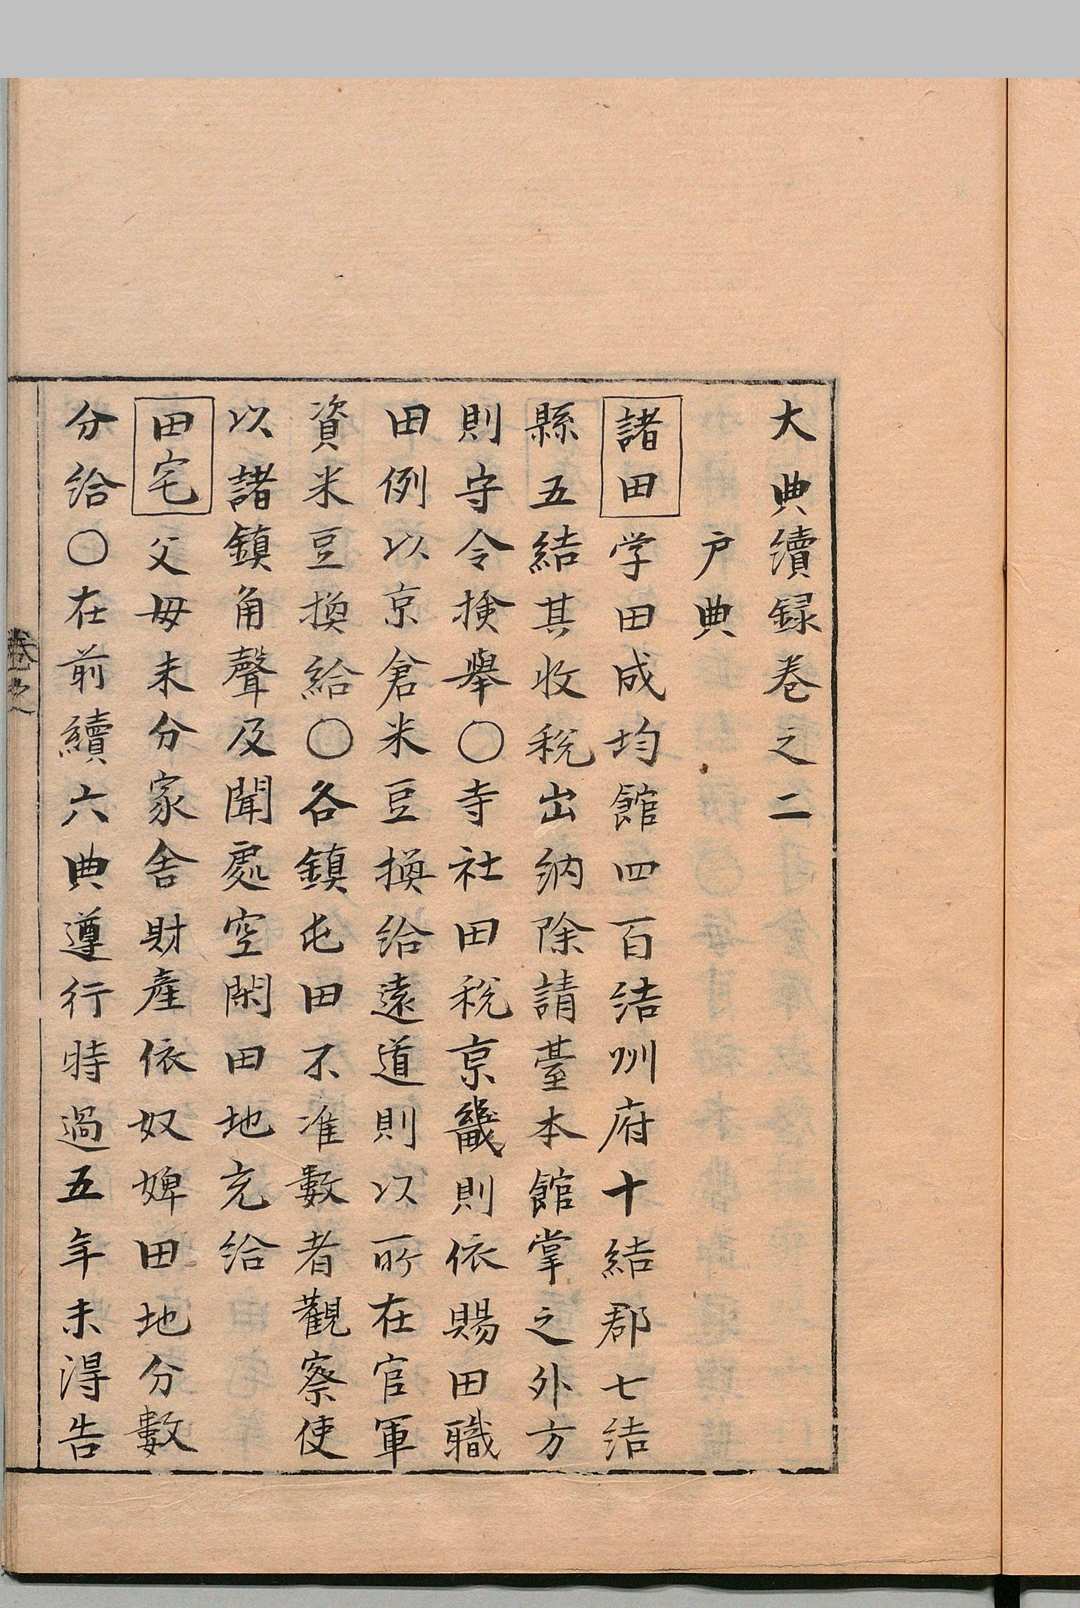 大典續録卷之二
戶典
諸田学田成均館四百结州府十結郡七结
縣五結其收税出納除請臺本館掌之外方
則守令撿舉〇寺社田税京畿則依賜田職
田例以京倉米豆換給遠道則以所在官軍
資米豆換給〇各鎮屯田不准數者觀察使
以諸鎮角聲及聞處空閑田地充给
田宅父母未分家舍財產依奴婢田地分數
分给〇在前續六典遵行時過五年未得告